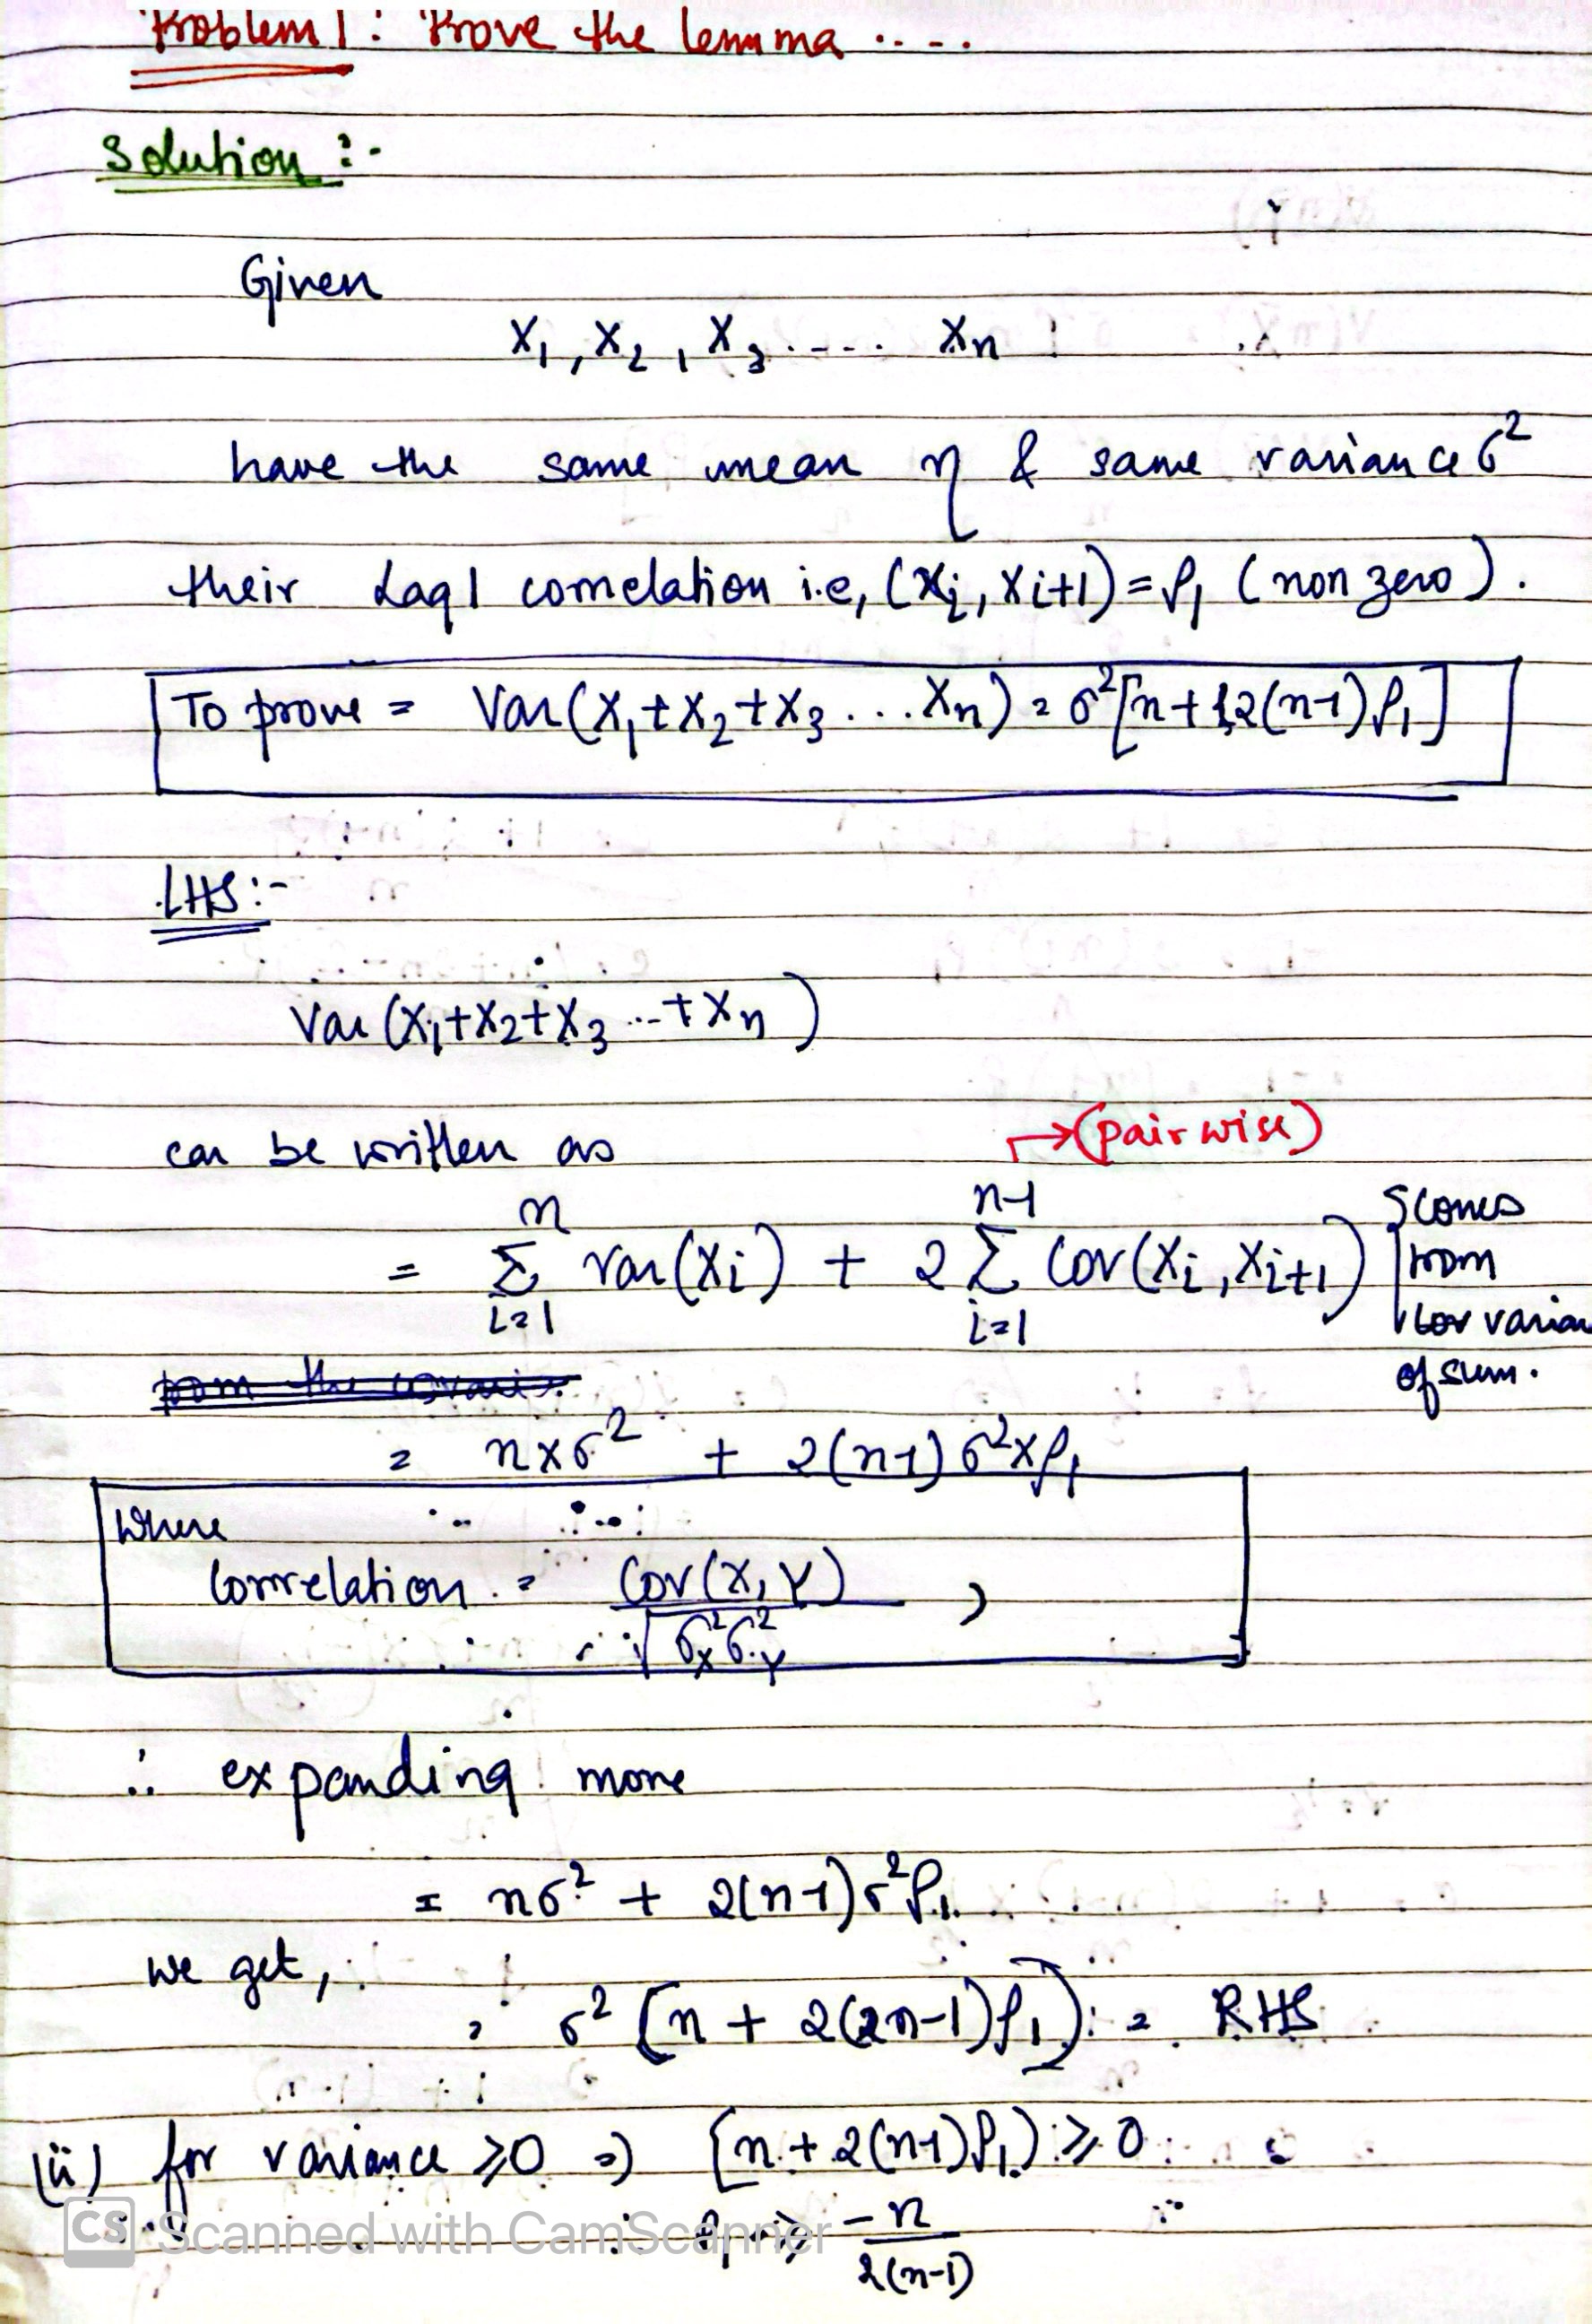 Problem 1: Prove the lemma ....
Solution :-
Given
X₁, X₂, X₃ ..... Xn
have the same mean η & same variance σ²
their Lag 1 correlation i.e, (Xi, Xi+1) = ρ₁ (non zero).
To prove = Var(X₁+X₂+X₃...Xn) = σ²[n+2(n-1)ρ₁]
LHS:-
Var(X₁+X₂+X₃...+Xn)
→(pair wise)
can be written as
= Σ_{i=1}^{n} Var(Xi) + 2 Σ_{i=1}^{n-1} Cov(Xi, Xi+1) {comes from covarian of sum.
from the covari
= n×σ² + 2(n-1)σ²×ρ₁
Where
Correlation = Cov(X,Y) / √(σ²_X σ²_Y) ,
∴ expanding more
= nσ² + 2(n-1)σ²ρ₁
we get,
= σ²(n + 2(2n-1)ρ₁) = RHS
(ii) for variance ≥0 ⇒ [n+2(n-1)ρ₁) ≥ 0
∴ ρ₁ ≥ -n / 2(n-1)
CS Scanned with CamScanner